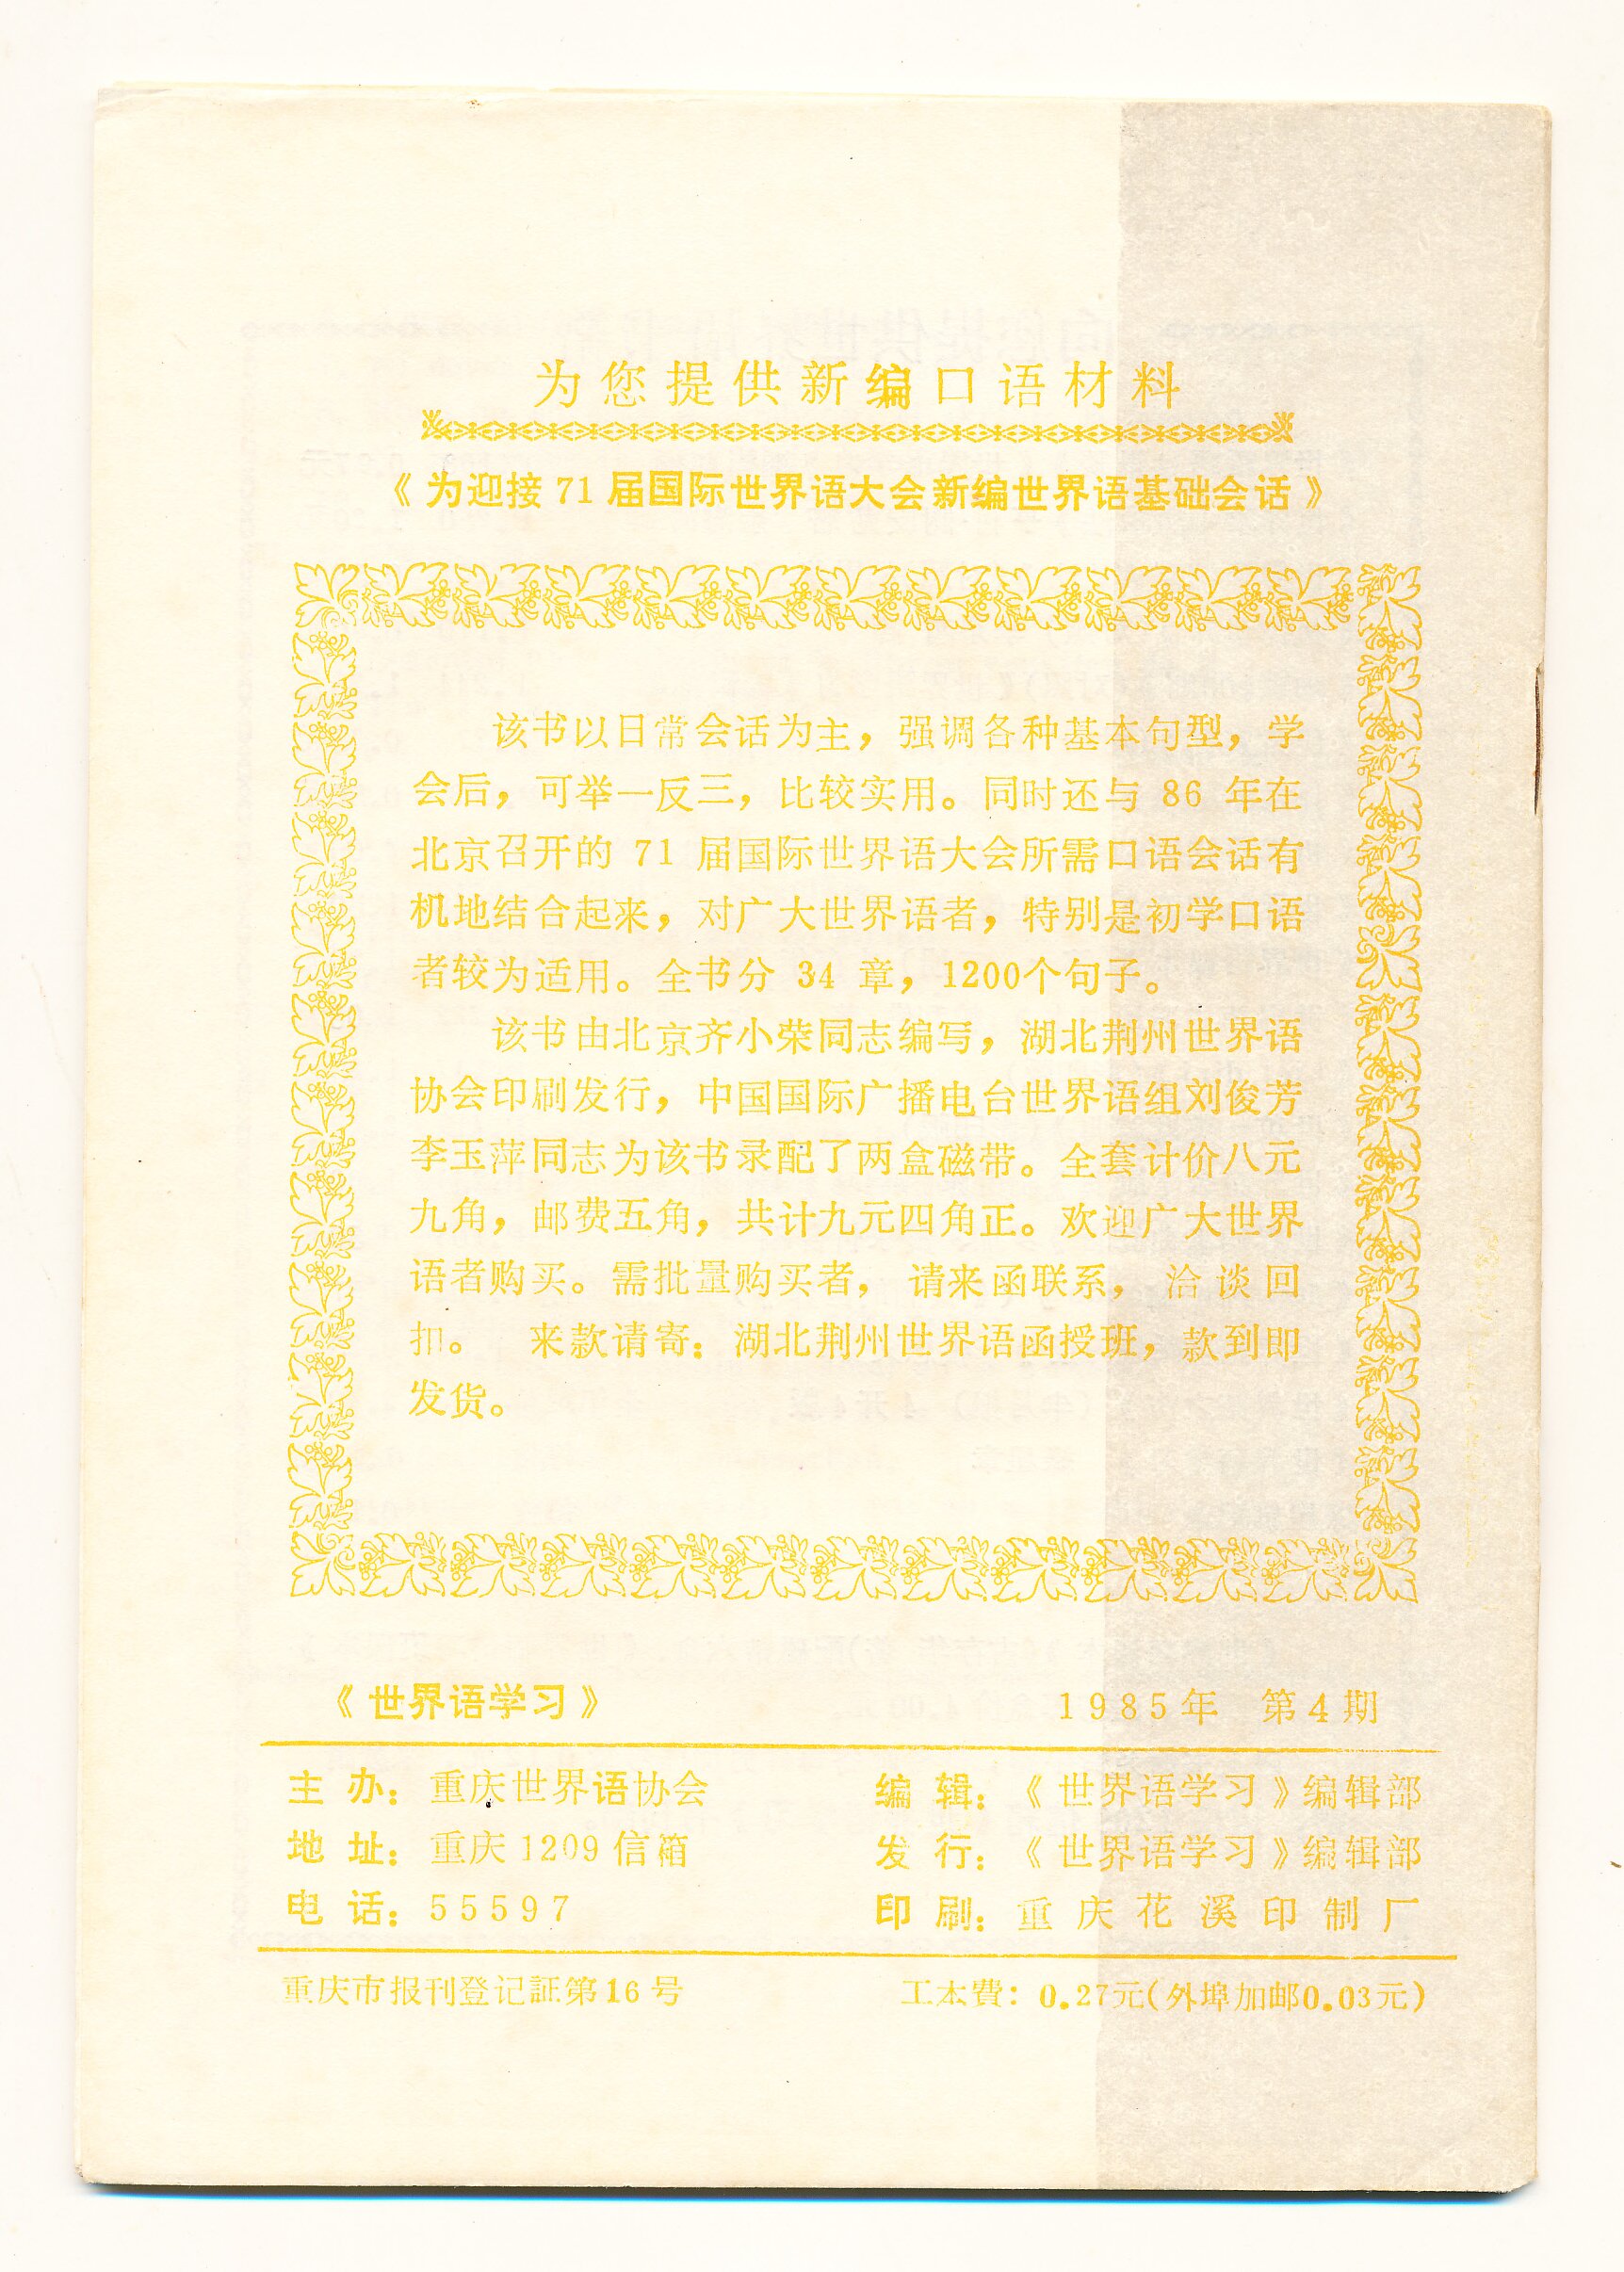 为您提供新编口语材料
《为迎接71届国际世界语大会新编世界语基础会话》
该书以日常会话为主，强调各种基本句型，学
会后，可举一反三，比较实用。同时还与 86 年在
北京召开的 71 届国际世界语大会所需口语会话有
机地结合起来，对广大世界语者，特别是初学口语
者较为适用。全书分 34 章，1200个句子。
该书由北京齐小荣同志编写，湖北荆州世界语
协会印刷发行，中国国际广播电台世界语组刘俊芳
李玉萍同志为该书录配了两盒磁带。全套计价八元
九角，邮费五角，共计九元四角正。欢迎广大世界
语者购买。需批量购买者，请来函联系，洽谈回
扣。 来款请寄：湖北荆州世界语函授班，款到即
发货。
《世界语学习》 1985年 第4期
主 办：重庆世界语协会 编 辑：《世界语学习》编辑部
地 址：重庆1209信箱 发 行：《世界语学习》编辑部
电 话：55597 印 刷：重庆花溪印制厂
重庆市报刊登记証第16号 工本費：0.27元(外埠加邮0.03元)